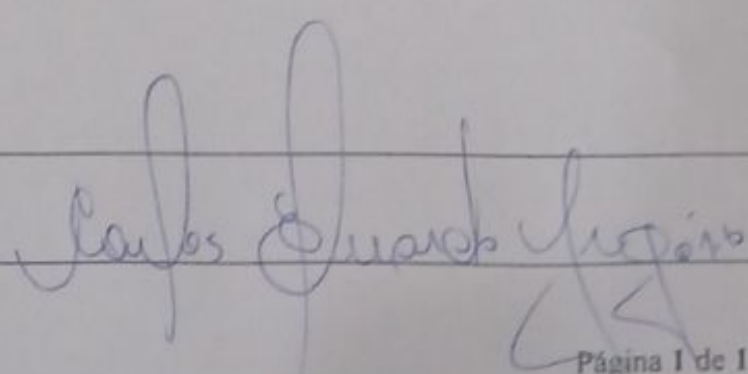 Carlos Eduardo
Página 1 de 1